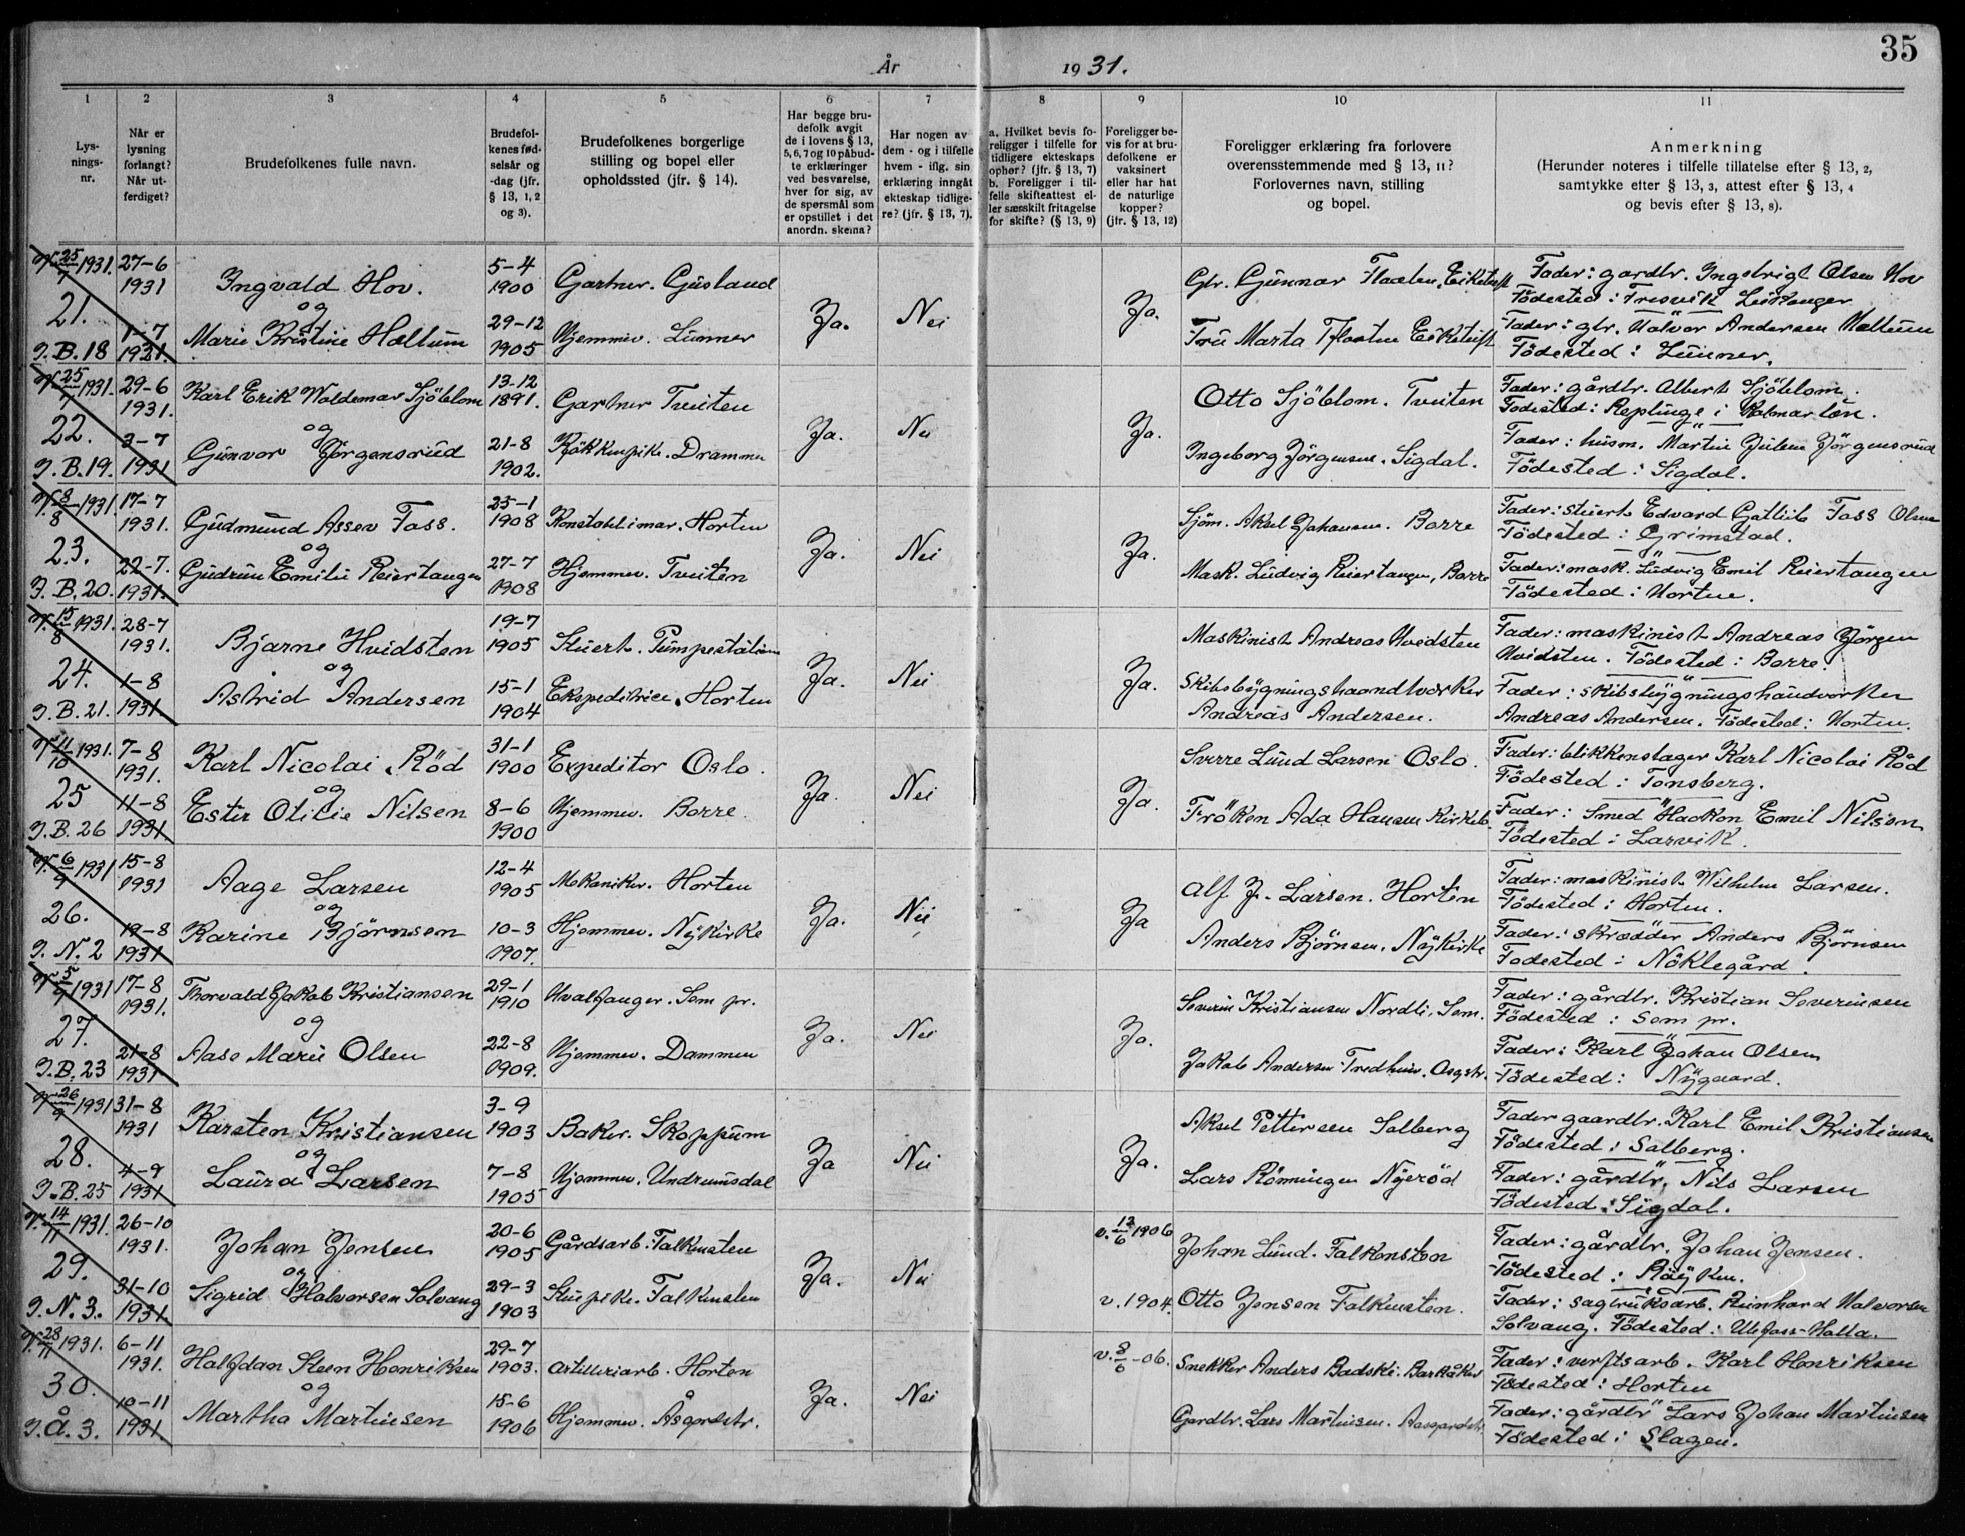 35
År 1931.
1 2 3 4 5 6 7 8 9 10 11
Lys-
nings-
nr.
Når er
lysning
forlangt?
Når ut-
ferdiget?
Brudefolkenes fulle navn.
Brudefol-
kenes fød-
selsår og
-dag (jfr.
§ 13, 1, 2
og 3).
Brudefolkenes borgerlige
stilling og bopel eller
opholdssted (jfr. § 14).
Har begge bru-
defolk avgit
de i lovens § 13,
5, 6, 7 og 10 påbud-
te erklæringer
ved besvarelse,
hver for sig, av
de spørsmål som
er opstillet i det
anordn. skema?
Har nogen av
dem - og i tilfelle
hvem - iflg. sin
erklæring inngåt
ekteskap tidlige-
re? (jfr. § 13, 7).
a. Hvilket bevis fo-
religger i tilfelle for
tidligere ekteskaps
ophør? (jfr. § 13, 7)
b. Foreligger i til-
felle skifteattest el-
ler særskilt fritagelse
for skifte? (§ 13, 9)
Foreligger be-
vis for at bru-
defolkene er
vaksinert
eller har hat
de naturlige
kopper?
(jfr. § 13, 12)
Foreligger erklæring fra forlovere
overensstemmende med § 13, 11?
Forlovernes navn, stilling
og bopel.
Anmerkning
(Herunder noteres i tilfelle tillatelse efter § 13, 2,
samtykke efter § 13, 3, attest efter § 13, 4
og bevis efter § 13, 8).
V. 25/7 1931. 27-6 1931
21. 1-7 1931.
J.B. 18
Ingvald Hov. 5-4 1900 Gartner. Gusland
og
Marie Kristine Haltum 29-12 1905 Hjemmev. Lunner
Ja. Nei Ja.
Gbr. Gunnar Flaaten, Eiketuft
Fru Marta Flaaten Eiketuft
Fader: gardbr. Ingebrigt Olsen Hov
Födested: Fresvik Leikanger
Fader: gbr. Halvor Andersen Haltum
Födested: Lunner.
V. 25/7 1931. 29-6 1931.
22. 3-7 1931
J.B. 19.
Karl Erik Woldemar Sjöblom 13-12 1891. Gartner Tveiten
og
Gunvor Jørgensrud 21-8 1902. Kjökkenpike. Drammen
Ja. Nei Ja.
Otto Sjöblom. Tveiten
Ingeborg Jörgensen. Sigdal.
Fader: gårdbr. Albert Sjöblom
Födested: Replinge i Kalmar län.
Fader: husm. Martin Julsen Jörgensrud
Födested: Sigdal.
V. 8/8 1931. 17-7 1931.
23. 22-7. 1931.
J.B. 20.
Gudmund Assev Foss. 25-1 1908 Konstabelimar. Horten
og
Gudrun Emilie Reiertangen 27-7 1908 Hjemmev. Tveiten
Ja. Nei Ja.
Sjöm. Aksel Johansen. Borre
Mask. Ludvig Reiertangen, Borre
Fader: stuert Edvard Foss Olsen
Födested: Grimstad.
Fader: mask. Ludvig Emil Reiertangen
Födested: Horten.
V. 15/8 1931. 28-7 1931.
24. 1-8 1931.
J.B. 21.
Bjarne Hvidsten 19-7 1905 Stuert. Pumpestation
og
Astrid Andersen 15-1 1904 Ekspeditrice. Horten
Ja. Nei Ja.
Maskinist Andreas Hvidsten
Skibsbygningshaandverker
Andreas Andersen.
Fader: maskinist Andreas Jörgen
Hvidsten. Födested: Borre.
Fader: skibsbygningshåndverker
Andreas Andersen. Födested: Horten.
V. 11/10 1931. 7-8 1931.
25 11-8 1931.
J.B. 26
Karl Nicolai Röd 31-1 1900 Expeditor Oslo.
og
Ester Otilie Nilsen 8-6 1900 Hjemmev. Borre.
Ja. Nei Ja.
Sverre Lund Larsen Oslo.
Fröken Ada Hansen Kirkeb.
Fader: blikkenslager Karl Nicolai Röd
Födested: Tonsberg.
Fader: Smed Haakon Emil Nilsen
Födested: Larvik.
V. 6/9 1931 15-8 1931
26. 19-8 1931
J. N. 2
Aage Larsen 12-4 1905 Mekaniker. Horten
og
Karine Bjørnsen 10-3 1907. Hjemmev. Nykirke
Ja. Nei Ja
Alf J. Larsen. Horten
Anders Bjørnsen. Nykirke
Fader: maskinist Wilhelm Larsen.
Födested: Horten.
Fader: skrædder Anders Bjørnsen
Fodested: Nöklegård.
V. 5/9 1931 17-8 1931.
27. 21-8 1931
J.B. 23
Thorvald Jakob Kristiansen 29-1 1910 Hvalfanger. Sem pr.
og
Aase Marie Olsen 22-8 1909. Hjemmev. Dammen
Ja. Nei Ja.
Severin Kristiansen Nordli, Sem.
Jakob Andersen Fredheim, Osgstr.
Fader: gårdbr. Kristian Severinsen
Födested: Sem pr.
Fader: Karl Johan Olsen
Födested: Nygaard.
V. 26/9 1931 31-8 1931
28. 4-9 1931
J.B. 25
Karsten Kristiansen 3-9 1903 Baker. Skoppum
og
Laura Larsen 7-8 1905 Hjemmev. Undrumsdal
Ja Nei Ja.
Aksel Pettersen Solberg
Lars Rönningen Nyeröd
Fader gaardbr. Karl Emil Kristiansen
Födested: Solberg.
Fader: gårdbr. Nils Larsen
Födested: Sigdal.
V. 14/11 1931. 26-10 1931.
29. 31-10 1931.
J. N. 3.
Johan Jensen 20-6 1905 Gårdsarb. Falkensten
og
Sigrid Halvorsen Solvang 29-3 1903 Stuepike. Falkensten
Ja. Nei
v. 12/6 1906
v. 1904.
Johan Lund. Falkensten
Otto Jensen Falkensten.
Fader: gårdbr. Johan Jensen.
Födested: Röyken.
Fader: sagbruksarb. Reinhard Halvorsen
Solvang. Födested: Ulefoss-Holla.
V. 28/11 1931. 6-11 1931.
30. 10-11 1931
J. Å. 3.
Halfdan Steen Henriksen 29-7 1903. Artilleriarb. Horten
og
Martha Martinsen 15-6 1906 Hjemmev. Åsgårdstr.
Ja. Nei
v. 8/6 -06.
Snekker Anders Badski. Barkåker
Gardbr. Lars Martinsen. Aasgaardstr.
Fader: verftsarb. Karl Henriksen
Födested: Horten
Fader: gårdbr Lars Johan Martinsen
Födested: Slagen.